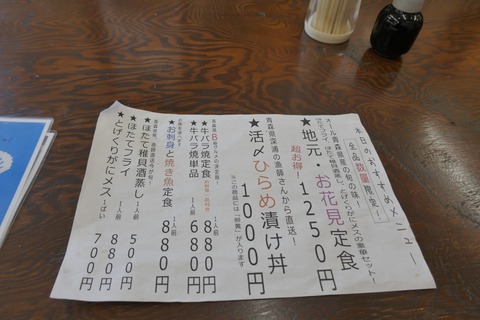 本日のおすすめメニュー
全品数量限定!
オール青森県産の旬の味!
★地元・お花見定食
超お得! 1250円
青森県深浦の漁師さんから直送!
★活〆ひらめ漬け丼
※この商品には「卵黄」が入ります
1000円
★牛バラ焼定食
1人前 880円
★牛バラ焼単品
1人前 680円
★お刺身と焼き魚定食
1人前 880円
★ほたて稚貝酒蒸し
1人前 500円
★ほたてフライ
1人前 880円
★とげくりがにメス
1ぱい 700円